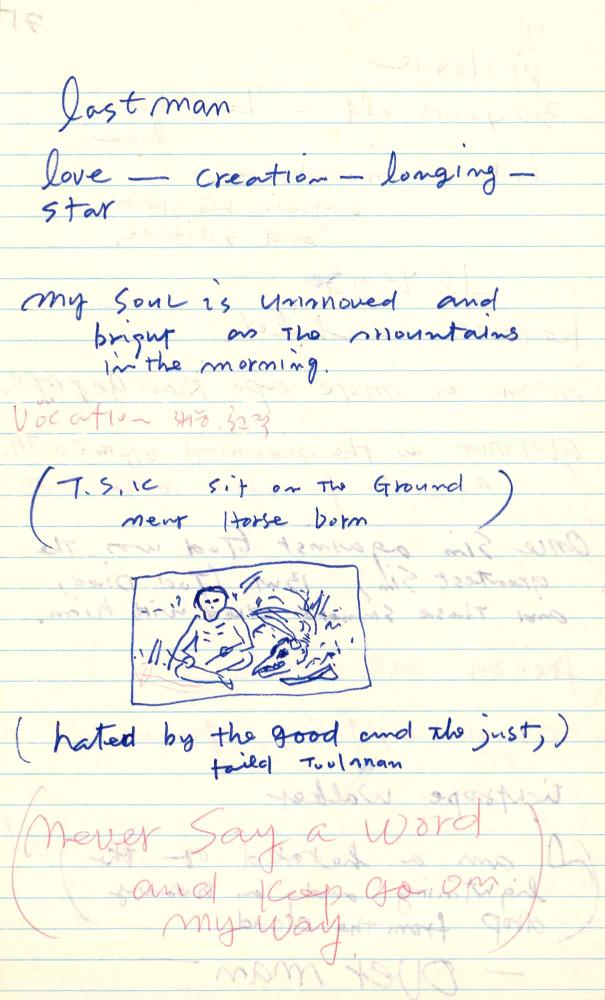 last man
love — creation — longing —
star
my soul is unmoved and
bright as the mountains
in the morning.
Vocation
(T.S.K sit on the Ground
near Horse born)
(hated by the good and the just,)
(never say a word
and keep go on
my way)